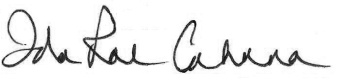 Ida Rae Cahana